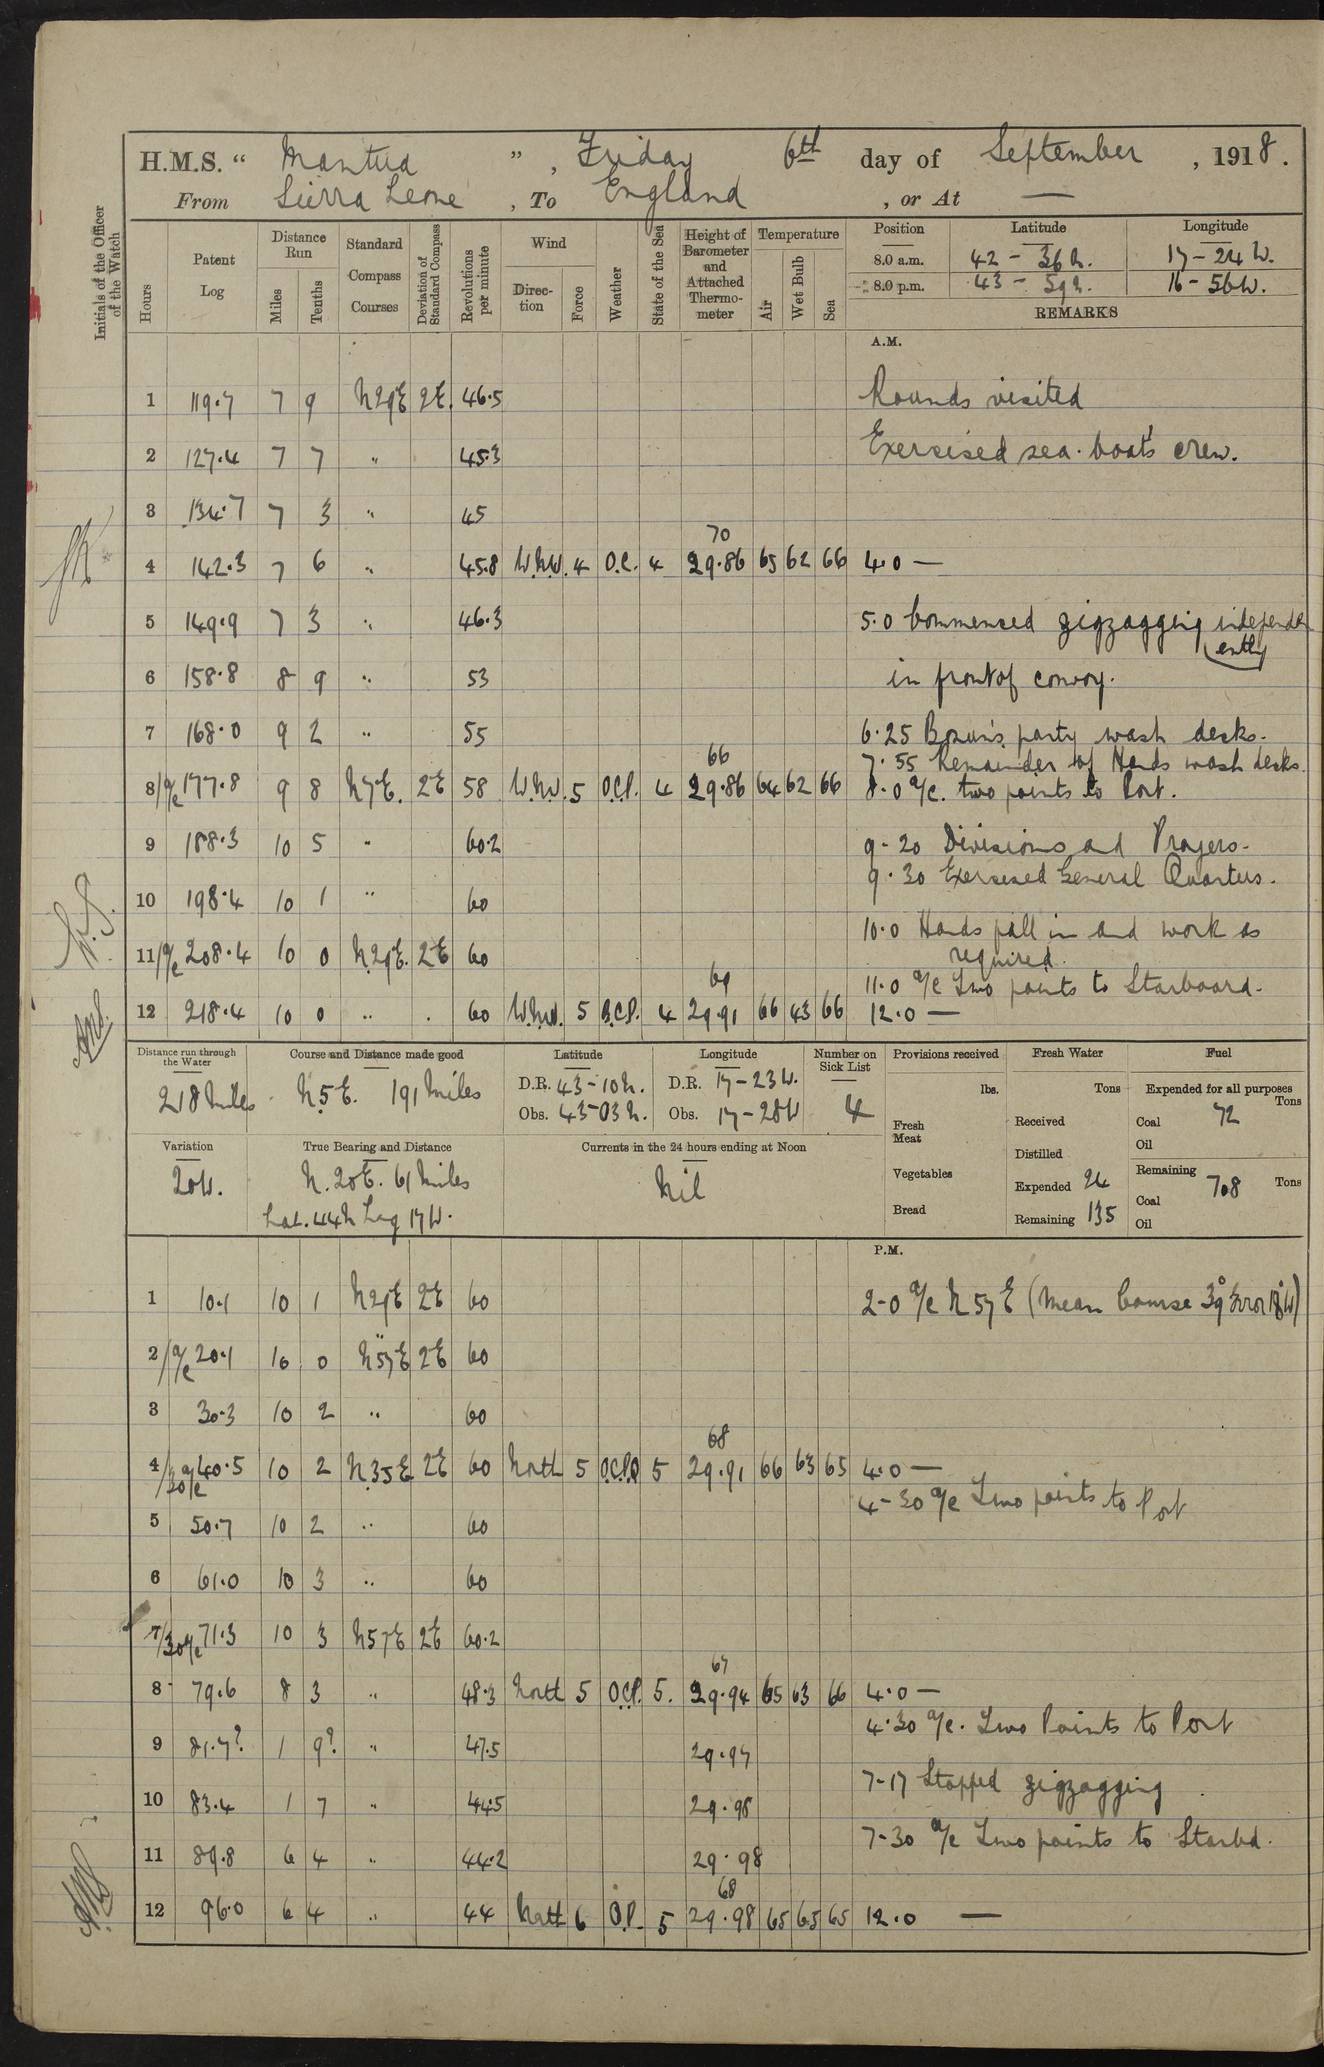 H.M.S. “ Mantua ” , Friday 6th day of September , 1918.
From Sierra Leone , To England , or At —
Initials of the Officer of the Watch
Hours
Patent Log
Distance Run
Miles
Tenths
Standard Compass Courses
Deviation of Standard Compass
Revolutions per minute
Wind
Direction
Force
Weather
State of the Sea
Height of Barometer and Attached Thermometer
Temperature
Air
Wet Bulb
Sea
Position Latitude Longitude
8.0 a.m. 42 - 36 N. 17 - 24 W.
8.0 p.m. 43 - 59 N. 16 - 56 W.
REMARKS
A.M.
1 119.7 7 9 N29E 2E. 46.5 Rounds visited
2 127.4 7 7 " 45.3 Exersised sea-boat's crew.
3 134.7 7 3 " 45
70
4 142.3 7 6 " 45.8 W.N.W. 4 O.C. 4 29.86 65 62 66 4.0 —
5 149.9 7 3 " 46.3 5.0 Commenced zigzagging independently
6 158.8 8 9 " 53 in front of convoy.
7 168.0 9 2 " 55 6.25 Bosun's party wash decks.
66 7.55 Remainder of Hands wash decks.
8/a/c 177.8 9 8 N7E. 2E 58 W.N.W. 5 O.C.P. 4 29.86 64 62 66 8.0 a/c. two points to Port.
9 188.3 10 5 " 60.2 9-20 Divisions and Prayers-
9.30 Exersised General Quarters.
10 198.4 10 1 " 60
10.0 Hands fall in and work as
11/a/c 208.4 10 0 N.29E. 2E 60 required.
69 11.0 a/c Two points to Starboard.
12 218.4 10 0 " . 60 W.N.W. 5 B.C.P. 4 29.91 66 43 66 12.0 —
Distance run through the Water
218 Miles
Course and Distance made good
N5E. 191 Miles
Latitude
D.R. 43-10 N.
Obs. 43-03 N.
Longitude
D.R. 17-23 W.
Obs. 17-28 W
Number on Sick List
4
Provisions received
lbs.
Fresh Meat
Vegetables
Bread
Fresh Water
Tons
Received
Distilled
Expended 24
Remaining 135
Fuel
Expended for all purposes
Tons
Coal 72
Oil
Remaining
Coal 708 Tons
Oil
Variation
20W.
True Bearing and Distance
N. 20E. 61 Miles
Lat. 44N Long 17W.
Currents in the 24 hours ending at Noon
Nil
P.M.
1 10.1 10 1 N29E 2E 60 2-0 a/c N57E (Mean Course 39°
2/a/c 20.1 10 0 N57E 2E 60
3 30.3 10 2 " 60
68
4/30 a/c 40.5 10 2 N.35E 2E 60 North 5 O.C.P.Q 5 29.91 66 63 65 4.0 —
4-30 a/c Two points to Port
5 50.7 10 2 " 60
6 61.0 10 3 " 60
7/30 a/c 71.3 10 3 N57E 2E 60.2
67
8 79.6 8 3 " 48.3 North 5 O.C.P. 5. 29.94 65 63 66 4.0 —
4.30 a/c. Two Points to Port
9 81.7? 1 9? " 47.5 29.97
7-17 Stopped zigzagging
10 83.4 1 7 " 44.5 29.98
7-30 a/c Two points to Starbd.
11 89.8 6 4 " 44.2 29.98
68
12 96.0 6 4 " 44 North 6 O.P. 5 29.98 65 63 65 12.0 —